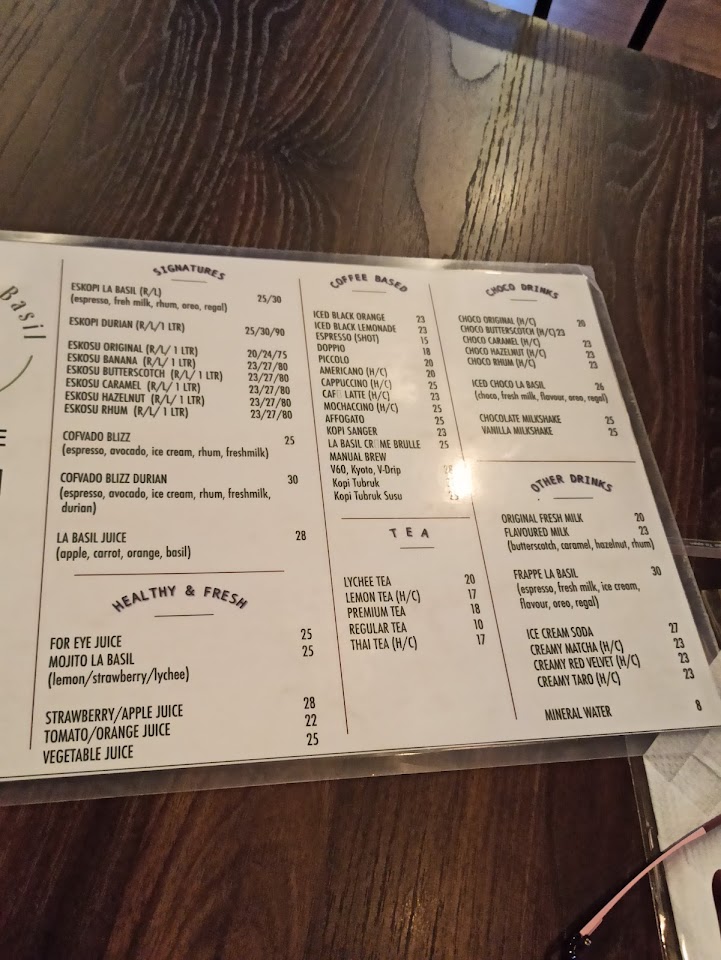 Basil
E
SIGNATURES
ESKOPI LA BASIL (R/L) 25/30
(espresso, freh milk, rhum, oreo, regal)
ESKOPI DURIAN (R/L/1 LTR) 25/30/90
ESKOSU ORIGINAL (R/L/ 1 LTR) 20/24/75
ESKOSU BANANA (R/L/ 1 LTR) 23/27/80
ESKOSU BUTTERSCOTCH (R/L/ 1 LTR) 23/27/80
ESKOSU CARAMEL (R/L/ 1 LTR) 23/27/80
ESKOSU HAZELNUT (R/L/ 1 LTR) 23/27/80
ESKOSU RHUM (R/L/ 1 LTR) 23/27/80
COFVADO BLIZZ 25
(espresso, avocado, ice cream, rhum, freshmilk)
COFVADO BLIZZ DURIAN 30
(espresso, avocado, ice cream, rhum, freshmilk,
durian)
LA BASIL JUICE 28
(apple, carrot, orange, basil)
HEALTHY & FRESH
FOR EYE JUICE 25
MOJITO LA BASIL 25
(lemon/strawberry/lychee)
STRAWBERRY/APPLE JUICE 28
TOMATO/ORANGE JUICE 22
VEGETABLE JUICE 25
COFFEE BASED
ICED BLACK ORANGE 23
ICED BLACK LEMONADE 23
ESPRESSO (SHOT) 15
DOPPIO 18
PICCOLO 20
AMERICANO (H/C) 20
CAPPUCINO (H/C) 25
CAF▯ LATTE (H/C) 23
MOCHACCINO (H/C) 25
AFFOGATO 25
KOPI SANGER 23
LA BASIL CR▯ME BRULLE 25
MANUAL BREW
V60, Kyoto, V-Drip
Kopi Tubruk
Kopi Tubruk Susu
TEA
LYCHEE TEA 20
LEMON TEA (H/C) 17
PREMIUM TEA 18
REGULAR TEA 10
THAI TEA (H/C) 17
CHOCO DRINKS
CHOCO ORIGINAL (H/C) 20
CHOCO BUTTERSCOTCH (H/C) 23
CHOCO CARAMEL (H/C) 23
CHOCO HAZELNUT (H/C) 23
CHOCO RHUM (H/C) 23
ICED CHOCO LA BASIL 26
(choco, fresh milk, flavour, oreo, regal)
CHOCOLATE MILKSHAKE 25
VANILLA MILKSHAKE 25
OTHER DRINKS
ORIGINAL FRESH MILK 20
FLAVOURED MILK 23
(butterscotch, caramel, hazelnut, rhum)
FRAPPE LA BASIL 30
(espresso, fresh milk, ice cream,
flavour, oreo, regal)
ICE CREAM SODA 27
CREAMY MATCHA (H/C) 23
CREAMY RED VELVET (H/C) 23
CREAMY TARO (H/C) 23
MINERAL WATER 8